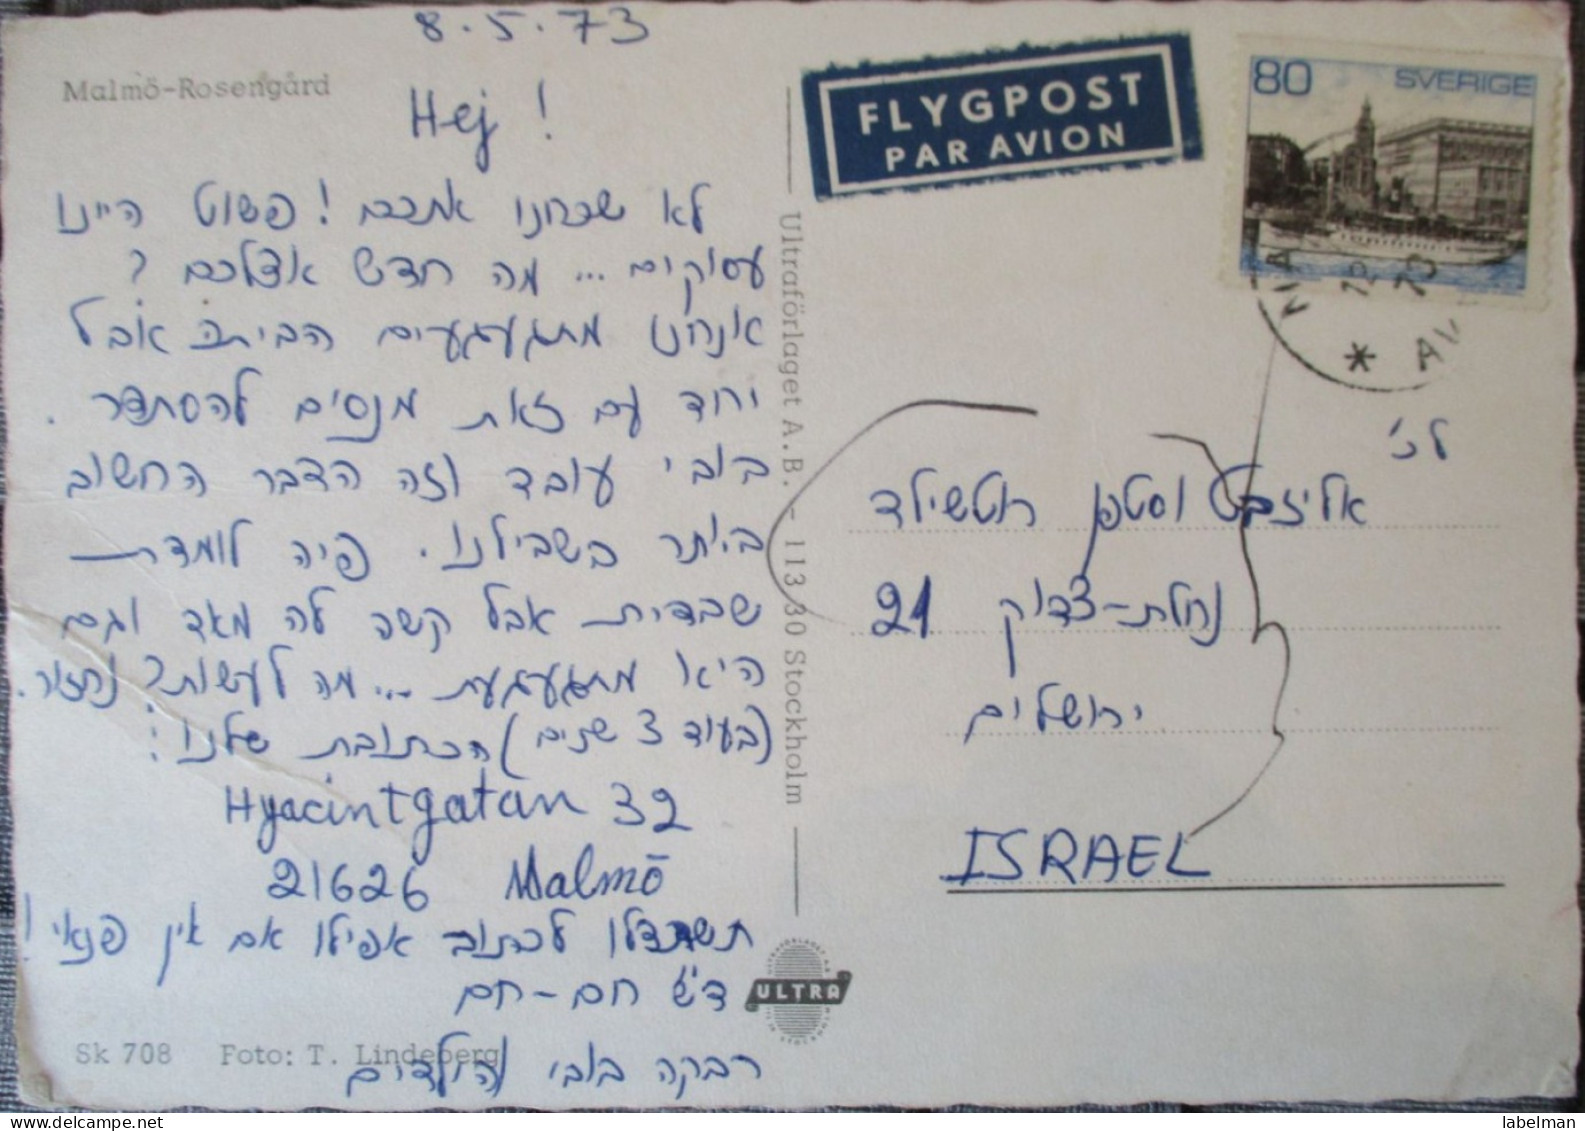 8.5.73
Malmö-Rosengård
Hej !
לא שכחנו אתכם! פשוט היינו
עסוקים... מה חדש אצלכם ?
אנחנו מתגעגעים הביתה אבל
יחד עם זאת מנסים להסתדר.
בובי עובד וזה הדבר החשוב
ביותר בשבילנו. פיה לומדת
שבדית אבל קשה לה מאד וגם
היא מתגעגעת... מה לעשות? נחזור.
(בעוד 3 שנים) הכתובת שלנו:
Hyacintgatan 32
21626 Malmö
תשתדלו לכתוב אפילו אם אין פנאי!
ד"ש חם-חם
רבקה בובי והילדים
Sk 708 Foto: T. Lindeberg
Ultraförlaget A.B. - 113 30 Stockholm
ULTRA
FLYGPOST
PAR AVION
80 SVERIGE
לכ'
אליזבט וסטפן רוטשילד
נחלת-צדוק 21
ירושלים
ISRAEL
labelman